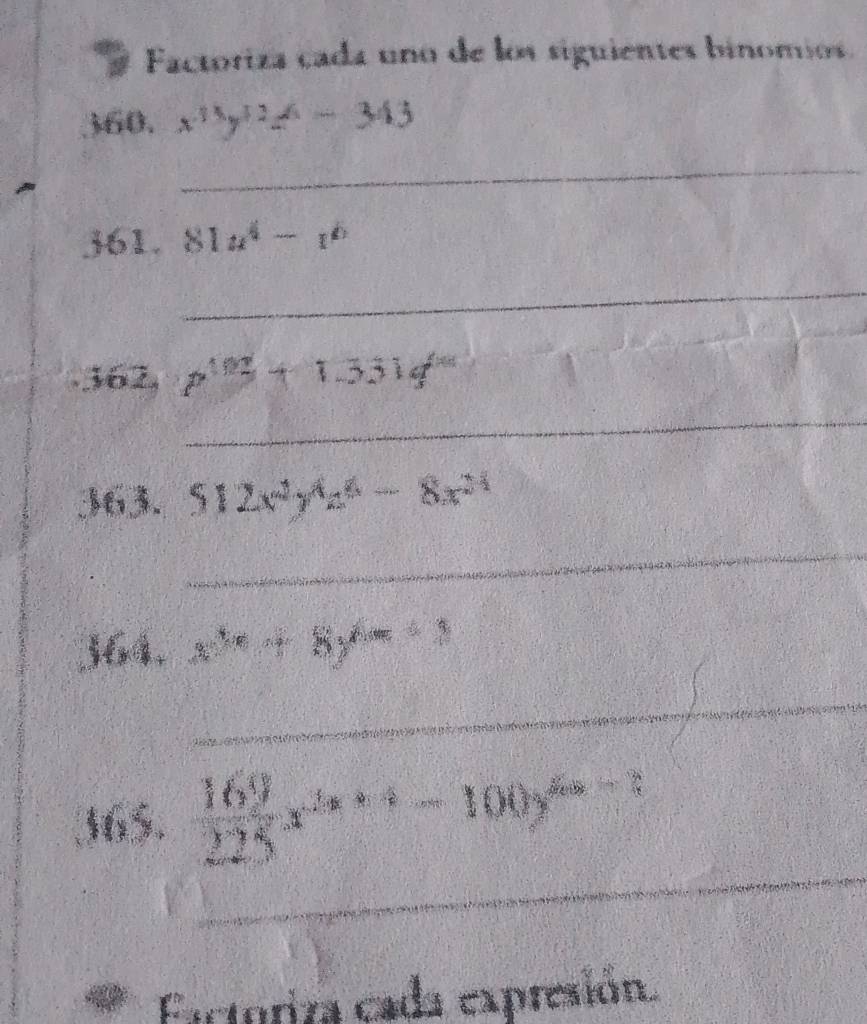 Factoriza cada uno de los siguientes binomios.
360. x¹⁵y¹²z⁶ − 343
361. 81u⁴ − t⁶
362. + 1.331q
363. 512x³y⁴z⁶ − 8x²⁴
364. + 8y
365. 169/225 x − 100y
Factoriza cada expresión.